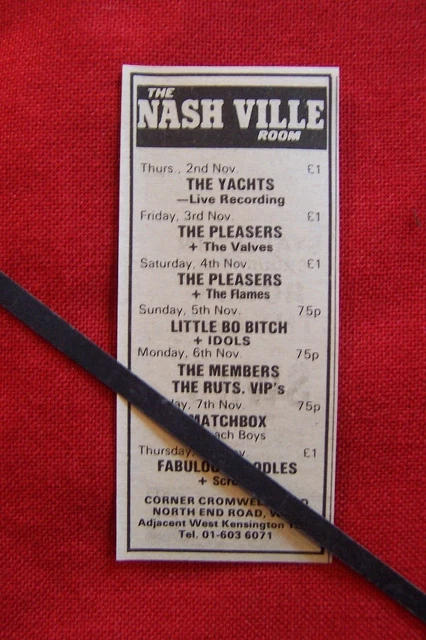 THE
NASHVILLE
ROOM
Thurs., 2nd Nov. £1
THE YACHTS
—Live Recording
Friday, 3rd Nov. £1
THE PLEASERS
+ The Valves
Saturday, 4th Nov. £1
THE PLEASERS
+ The Flames
Sunday, 5th Nov. 75p
LITTLE BO BITCH
+ IDOLS
Monday, 6th Nov. 75p
THE MEMBERS
THE RUTS. VIP's
7th Nov. 75p
MATCHBOX
Boys
Thursday, £1
+
CORNER
NORTH END ROAD,
Adjacent West Kensington
Tel. 01-603 6071